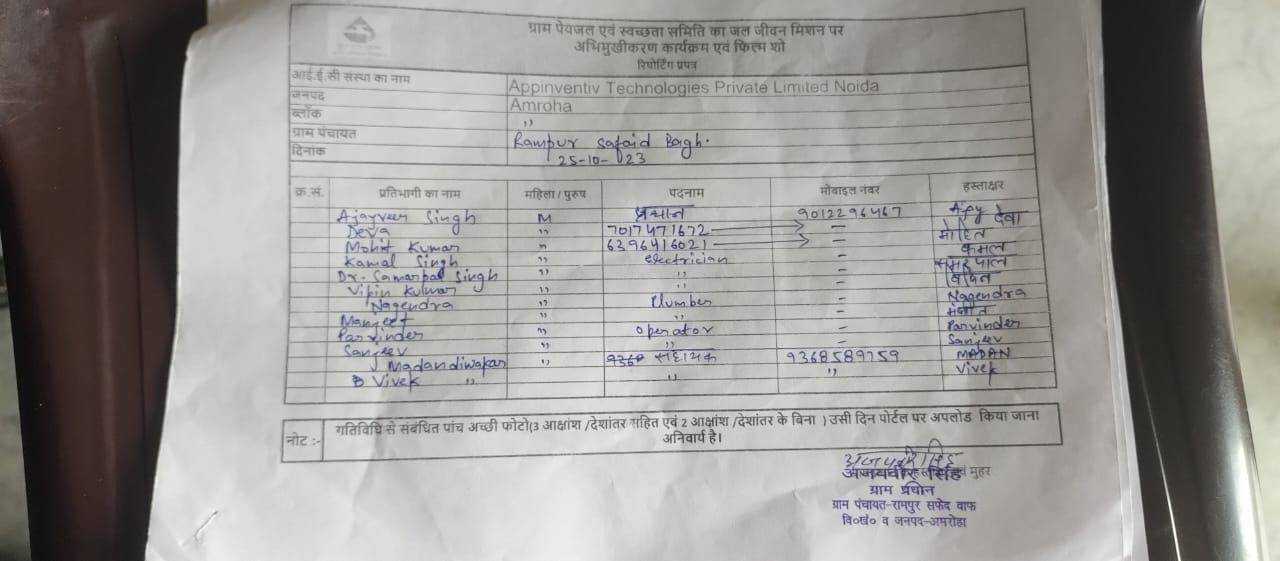 ग्राम पेयजल एवं स्वच्छता समिति का जल जीवन मिशन पर
अभिमुखीकरण कार्यक्रम एवं फिल्म शो
रिपोर्टिंग प्रपत्र
आई.ई.सी संस्था का नाम Appinventiv Technologies Private Limited Noida
जनपद Amroha
ब्लॉक ,,
ग्राम पंचायत Rampur Safaid Bagh.
दिनांक 25-10-23
क्र.सं. प्रतिभागी का नाम महिला / पुरुष पदनाम मोबाइल नंबर हस्ताक्षर
Ajayveer Singh M प्रधान 9012296467 Ajay
Deva ,, 7017471672 - देवा
Mohit Kumar ,, 6396416021 - मोहित
Kamal Singh ,, electrician - कमल
Dr. Samarpal Singh ,, ,, - समरपाल
Vipin Kumar ,, ,, - विपिन
Nagendra ,, Plumber - Nagendra
Manjeet ,, ,, -
Parvinder ,, operator - Parvinder
Sanjeev ,, ,, - Sanjeev
Madandiwakar ,, सहायक 9368589759 MADAN
Vivek ,, ,, ,, Vivek
नोट :- गतिविधि से संबंधित पांच अच्छी फोटो(3 आक्षांश /देशांतर सहित एवं 2 आक्षांश /देशांतर के बिना ) उसी दिन पोर्टल पर अपलोड किया जाना
अनिवार्य है।
अजयवीर सिंह
मुहर
ग्राम प्रधान
ग्राम पंचायत-रामपुर सफेद वाफ
वि०खं० व जनपद-अमरोहा